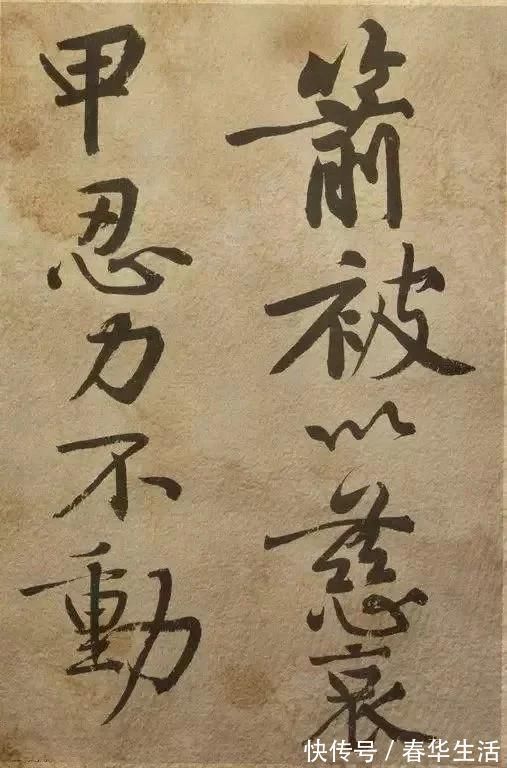 箭被以慈哀
甲忍力不動
快传号/春华生活